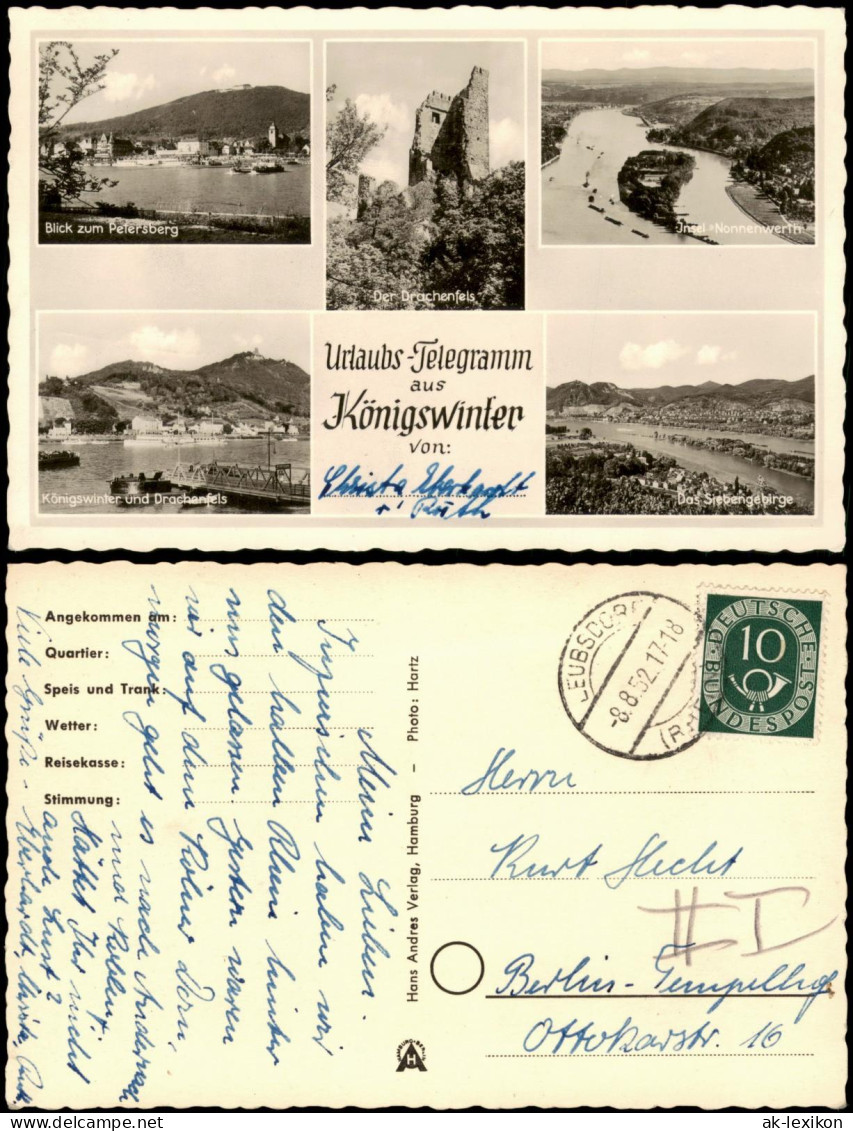 Blick zum Petersberg
Der Drachenfels
Insel »Nonnenwerth
Urlaubs-Telegramm
aus
Königswinter
von:
Christa Eberhardt
u. Ruth
Königswinter und Drachenfels
Das Siebengebirge
Angekommen am:
Quartier:
Speis und Trank:
Wetter:
Reisekasse:
Stimmung:
Meine Lieben.
Inzwischen haben wir
den halben Rhein hinter
uns gelassen. Gestern waren
wir auf dem Kölner Dom,
morgen geht es nach Andernach
und Koblenz.
Hättet Ihr nicht
auch Lust?
Viele Grüße - Eberhardt, Christa, Ruth
Hans Andres Verlag, Hamburg – Photo: Hartz
HAMBURG-BERLIN
H
LEUBSDORF
-8.8.52.17-18
DEUTSCHE
BUNDESPOST
10
Herrn
Kurt Hecht
Berlin-Tempelhof
Ottokarstr. 16
akpool-ansichtskarten-center.de
ak-lexikon.com